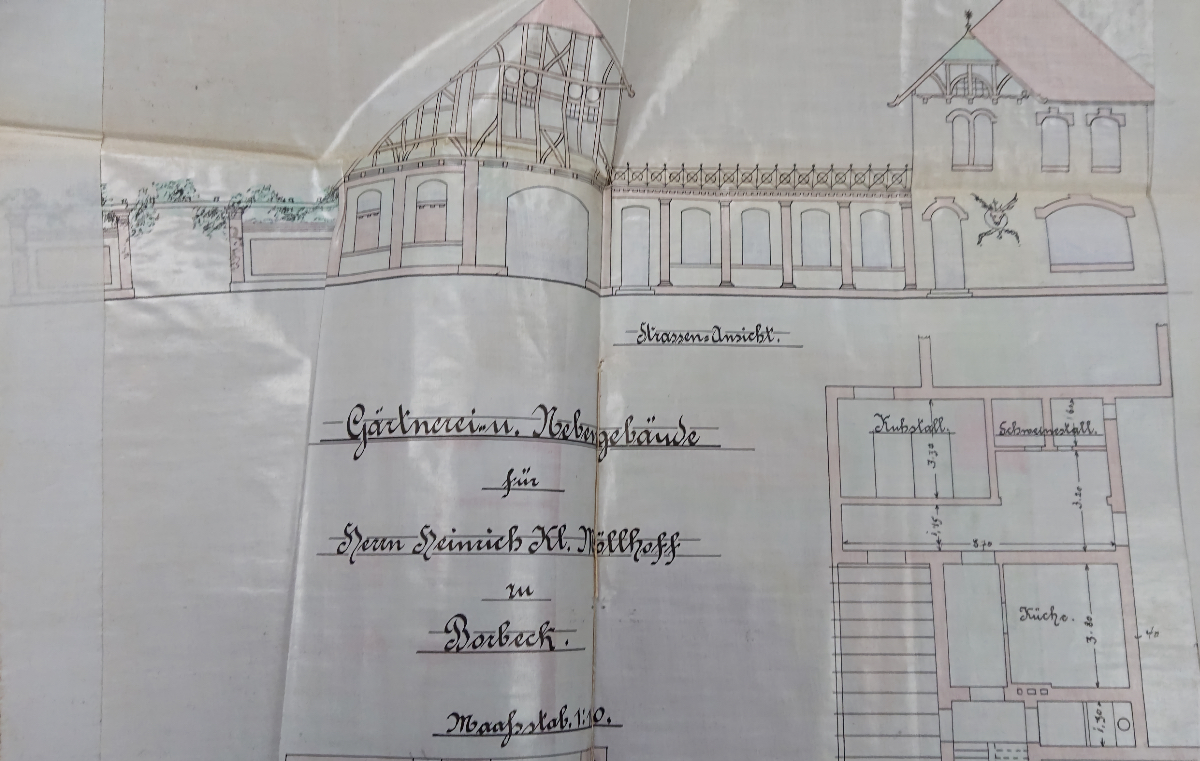 Strassen=Ansicht.
Gärtnerei- u. Nebengebäude
für
Herrn Heinrich Kl. Möllhoff
zu
Borbeck.
Maaßstab. 1:10.
Kuhstall.
Schweinestall.
1,60
3,30
3,20
1,15
8,70
Küche.
3,80
40
1,30